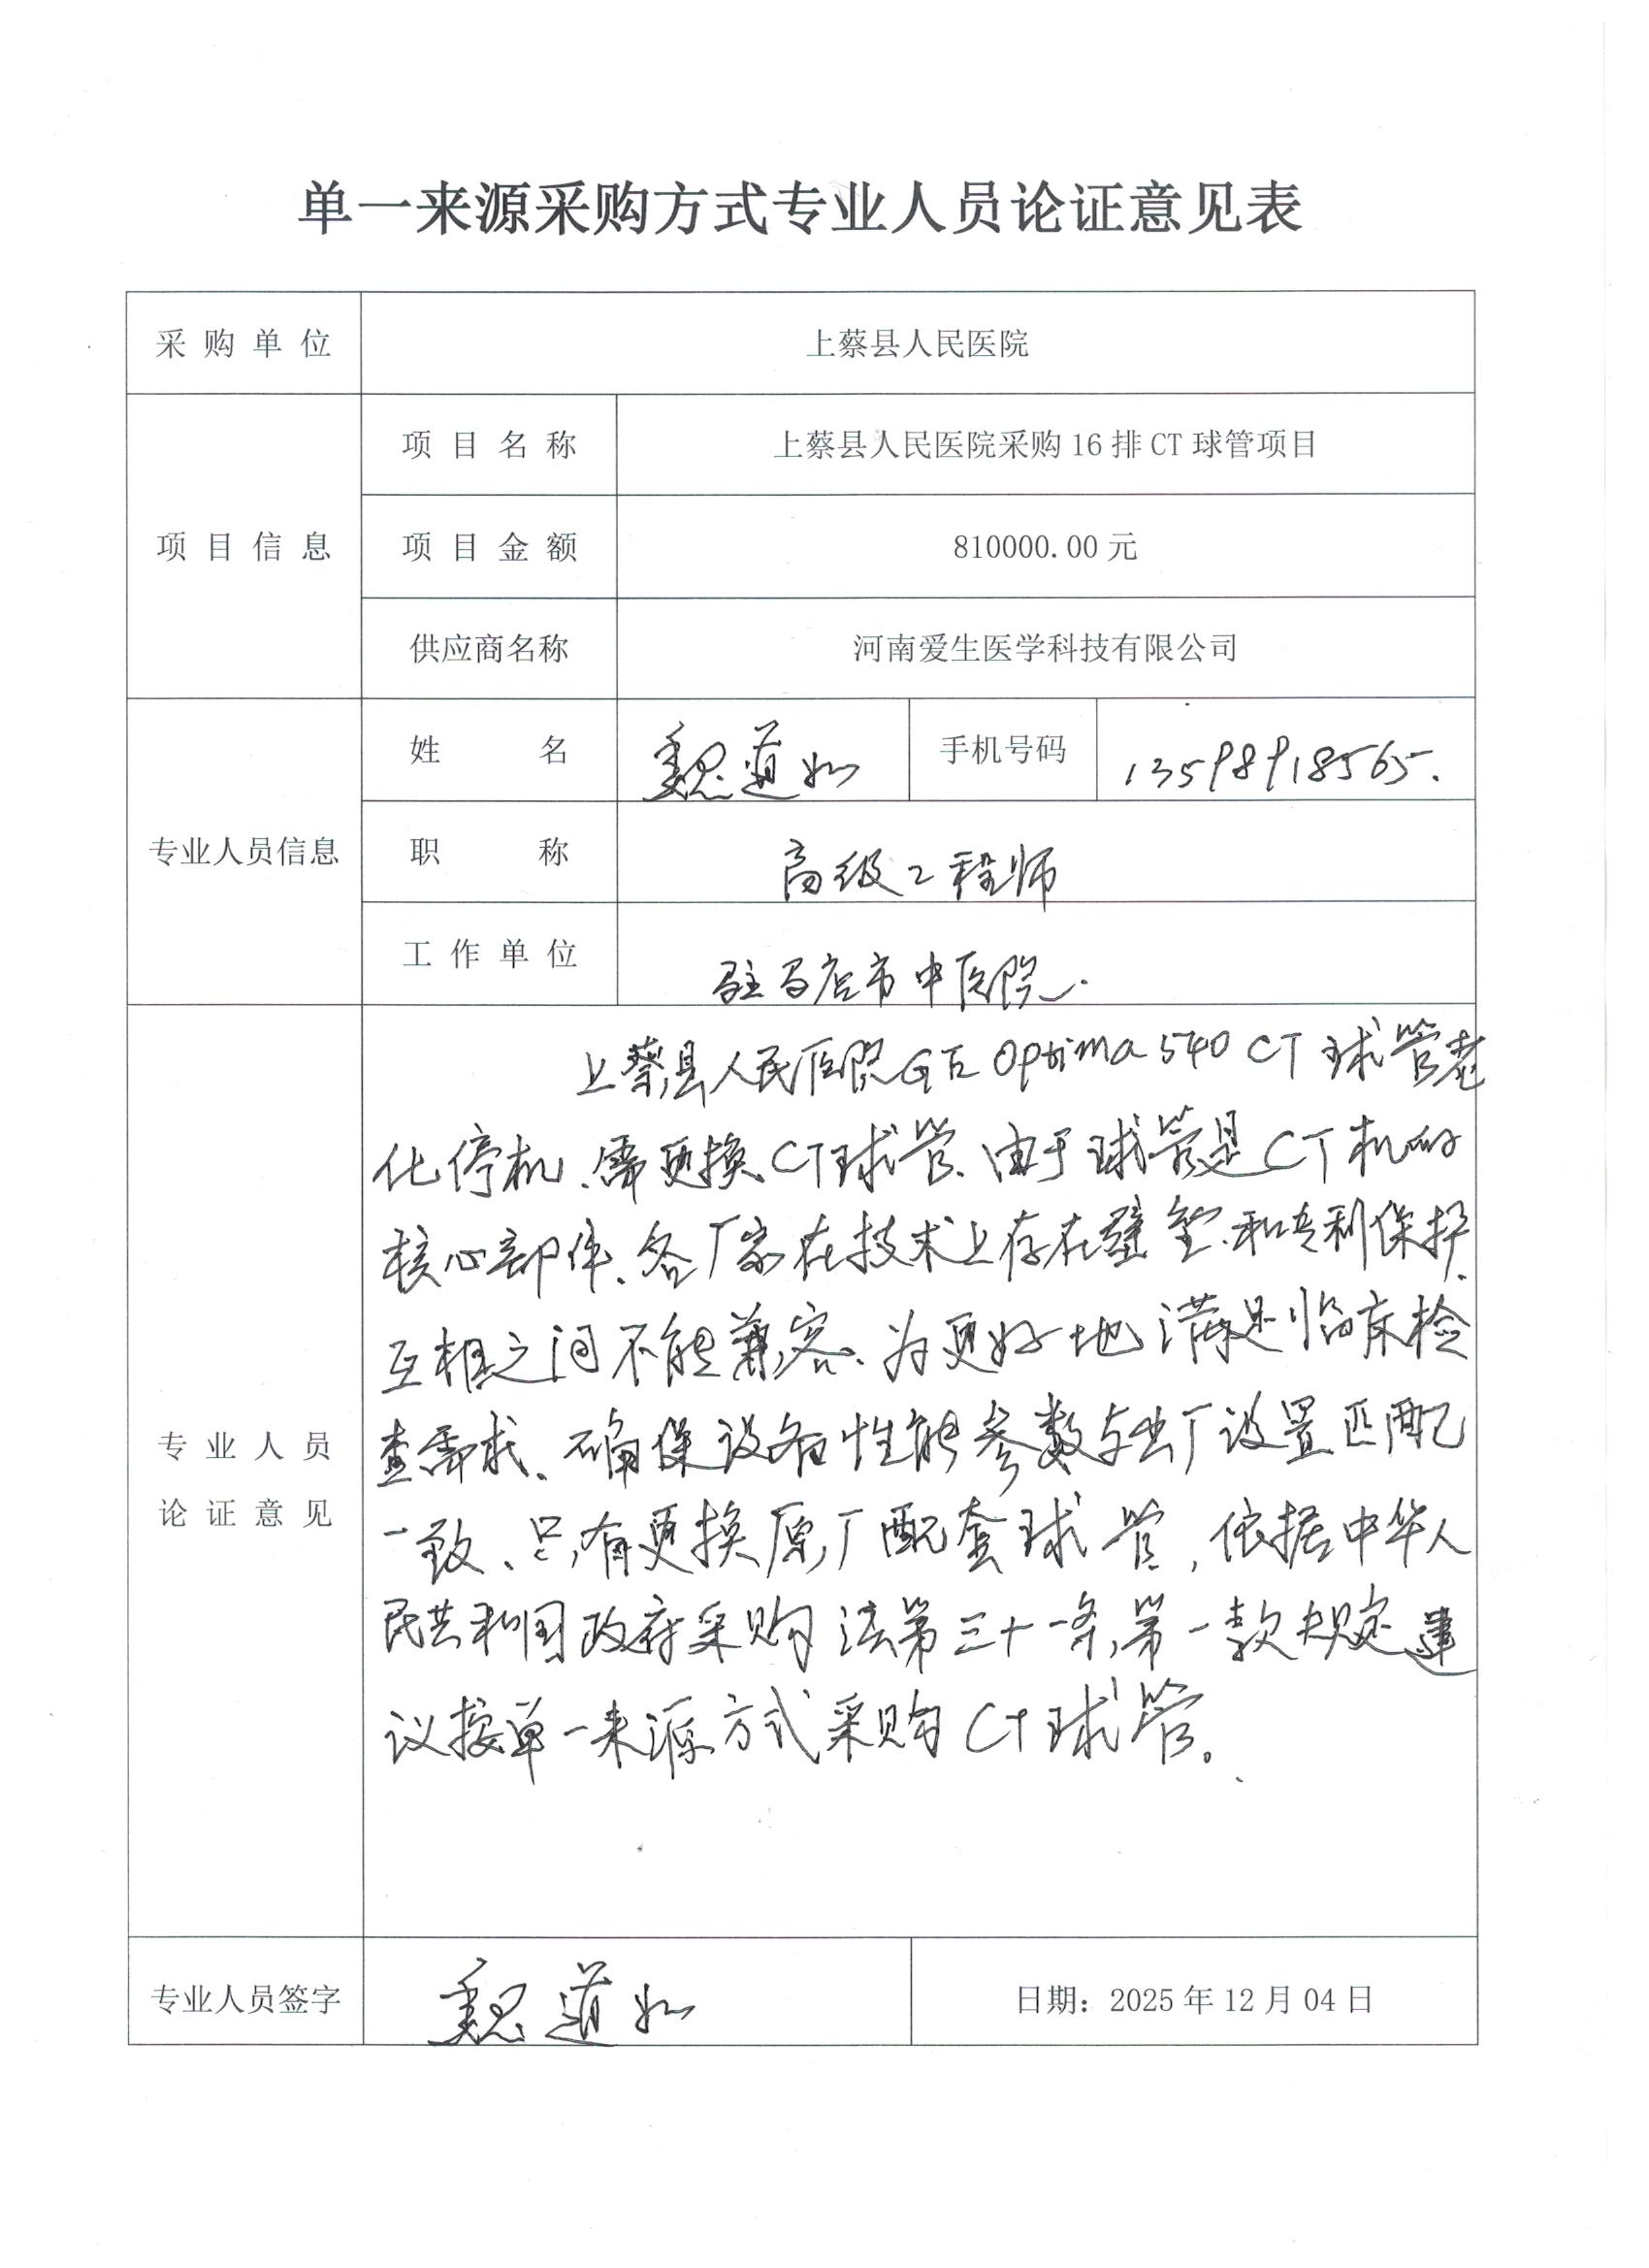 单一来源采购方式专业人员论证意见表
采购单位 上蔡县人民医院
项目信息 项目名称 上蔡县人民医院采购16排CT球管项目
项目金额 810000.00元
供应商名称 河南爱生医学科技有限公司
专业人员信息 姓名 魏道如 手机号码 13598918565.
职称 高级工程师
工作单位 驻马店市中医院.
专业人员
论证意见
上蔡县人民医院GE Optima 540 CT 球管老
化停机、需更换CT球管、由于球管是CT机的
核心部件、各厂家在技术上存在壁垒和专利保护、
互相之间不能兼容、为更好地满足临床检
查需求、确保设备性能参数与出厂设置匹配
一致、只有更换原厂配套球管,依据中华人
民共和国政府采购法第三十一条,第一款规定建
议按单一来源方式采购CT球管。
专业人员签字 魏道如 日期：2025年12月04日